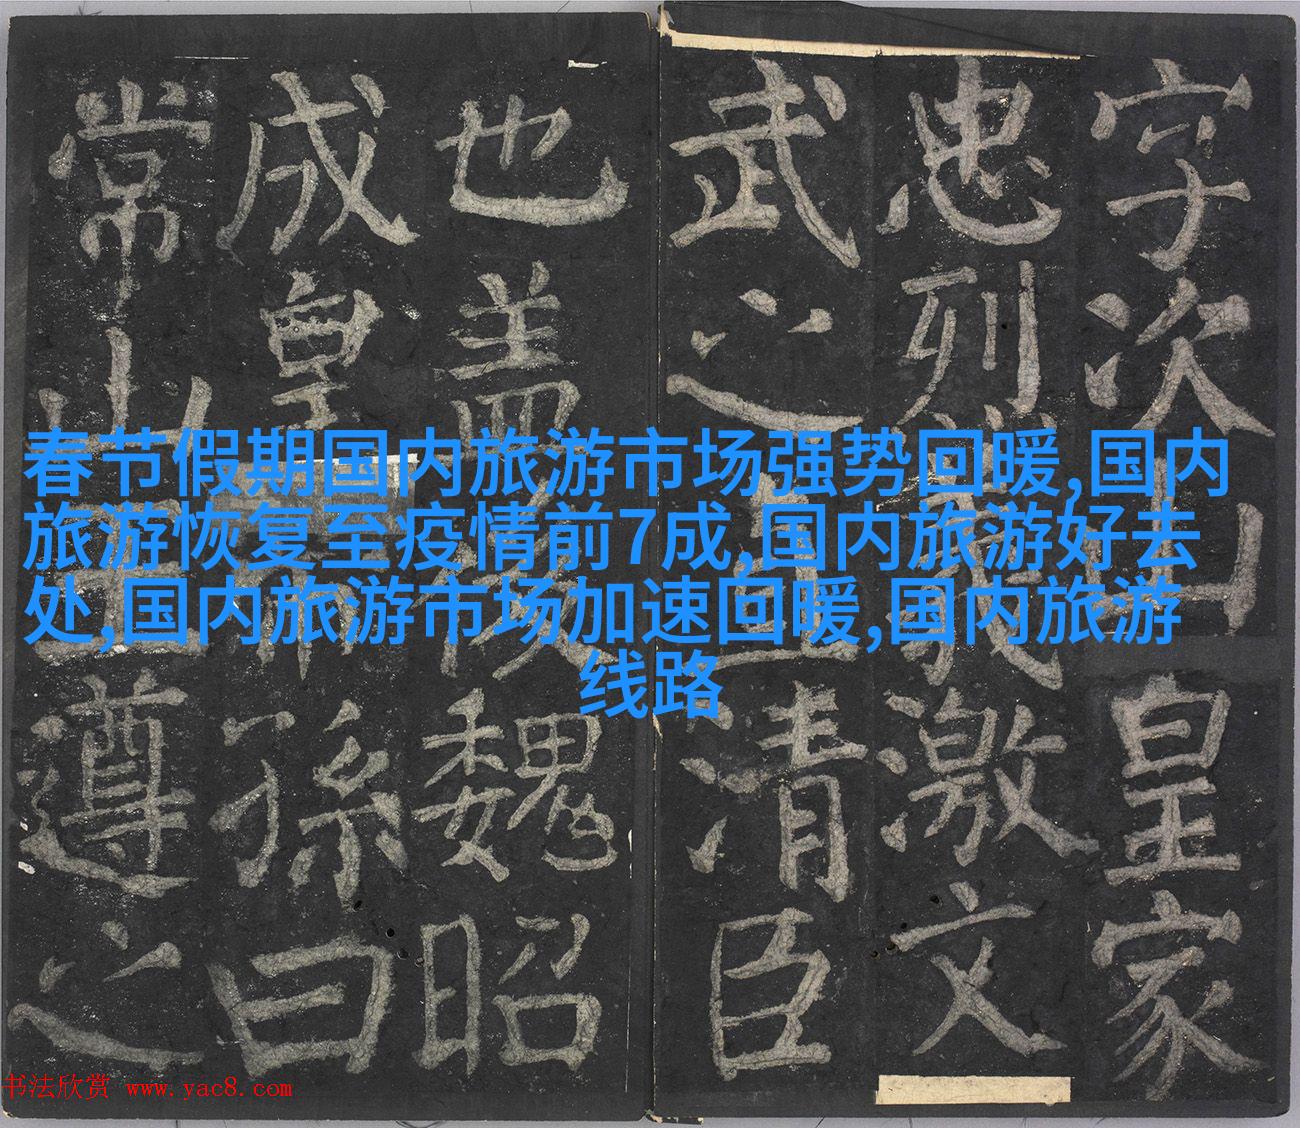 字次山皇家
忠烈義激文
武之直清臣
也盖後魏昭
成皇帝孫曰
常山王遵之
春节假期国内旅游市场强势回暖,国内
旅游恢复至疫情前7成,国内旅游好去
处,国内旅游市场加速回暖,国内旅游
线路
书法欣赏 www.yac8.com